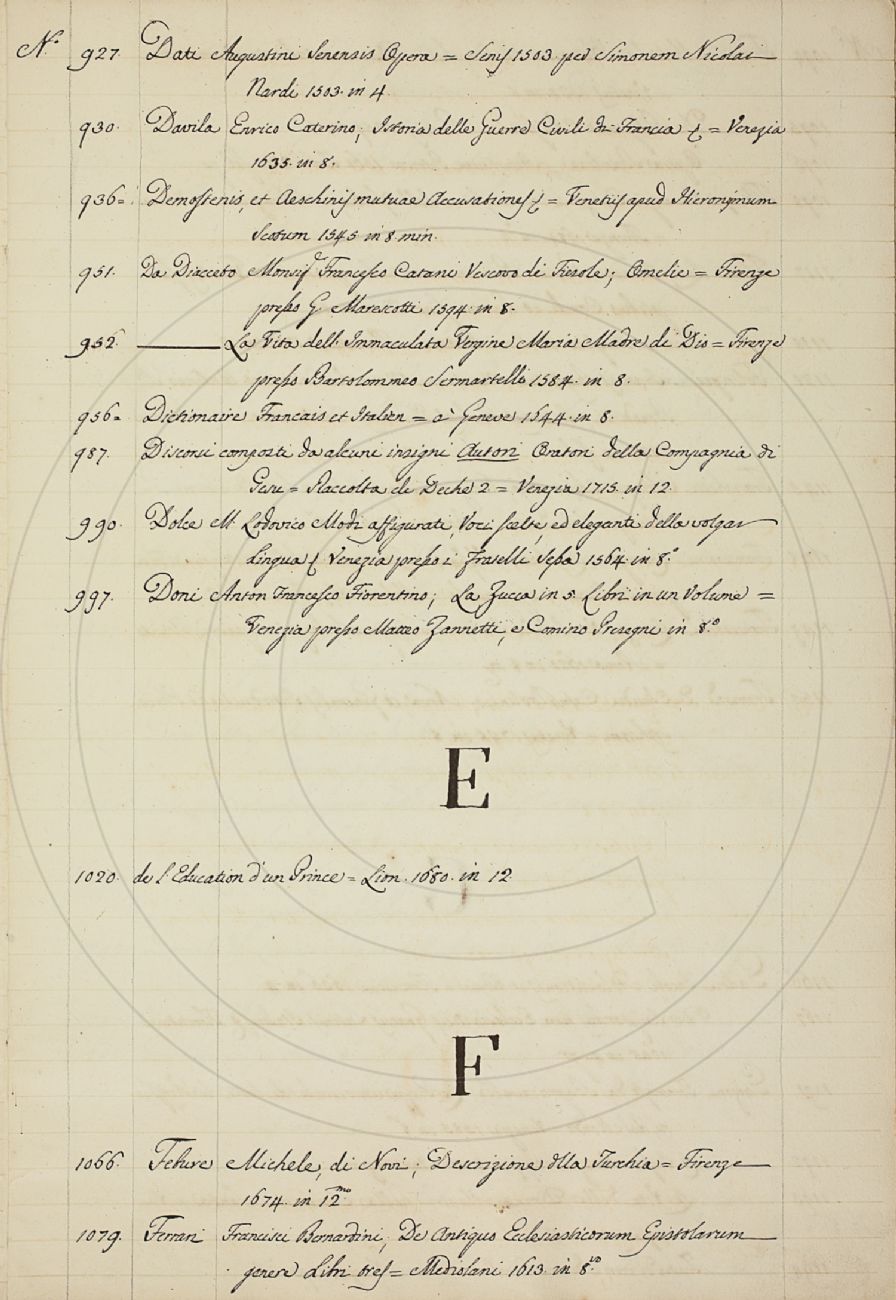 N.º 927. Dati Augustini Senensis Opera = Senis 1503 per Simonem Nicolai
Nardi 1503. in 4.
930. Davila Enrico Caterino; Istoria delle Guerre Civili di Francia = Venezia
1635. in 8.
936= Demostenis, et Aeschinis mutuae Accusationes = Venetiis apud Hieronymum
Scotum 1545 in 8. min.
951. Da Diacceto Monsig.r Francesco Catani Vescovo di Fiesole; Omelie = Firenze
presso G. Marescotti 1594 in 8.
952. ——— La Vita dell' Immaculata Vergine Maria Madre di Dio = Firenze
presso Bartolommeo Sermartelli 1584. in 8.
956= Dictionaire Francais et Italien = a Geneve 1644. in 8.
987. Discorsi composti da alcuni insigni Autori Oratori della Compagnia di
Gesu = Raccolta di Deche 2 = Venezia 1715. in 12.
990. Dolce M. Lodovico Modi affigurati, Voci scelte, ed eleganti della volgar
Lingua Venezia presso i Fratelli Sessa 1564. in 8.º
997. Doni Anton Francesco Fiorentino; La Zucca in 5. Libri in un Volume =
Venezia presso Matteo Zannetti, e Comino Presegni in 8.º
E
1020. de l'Education d'un Prince = Lion. 1680. in 12.
F
1066. Febure Michele, di Novi; Descrizione dlla Turchia = Firenze
1674. in 12.mo
1079. Ferrari Francisci Bernardini; De Antiquo Ecclesiasticorum Epistolarum
genere Libri tres = Mediolani 1613. in 8.vo